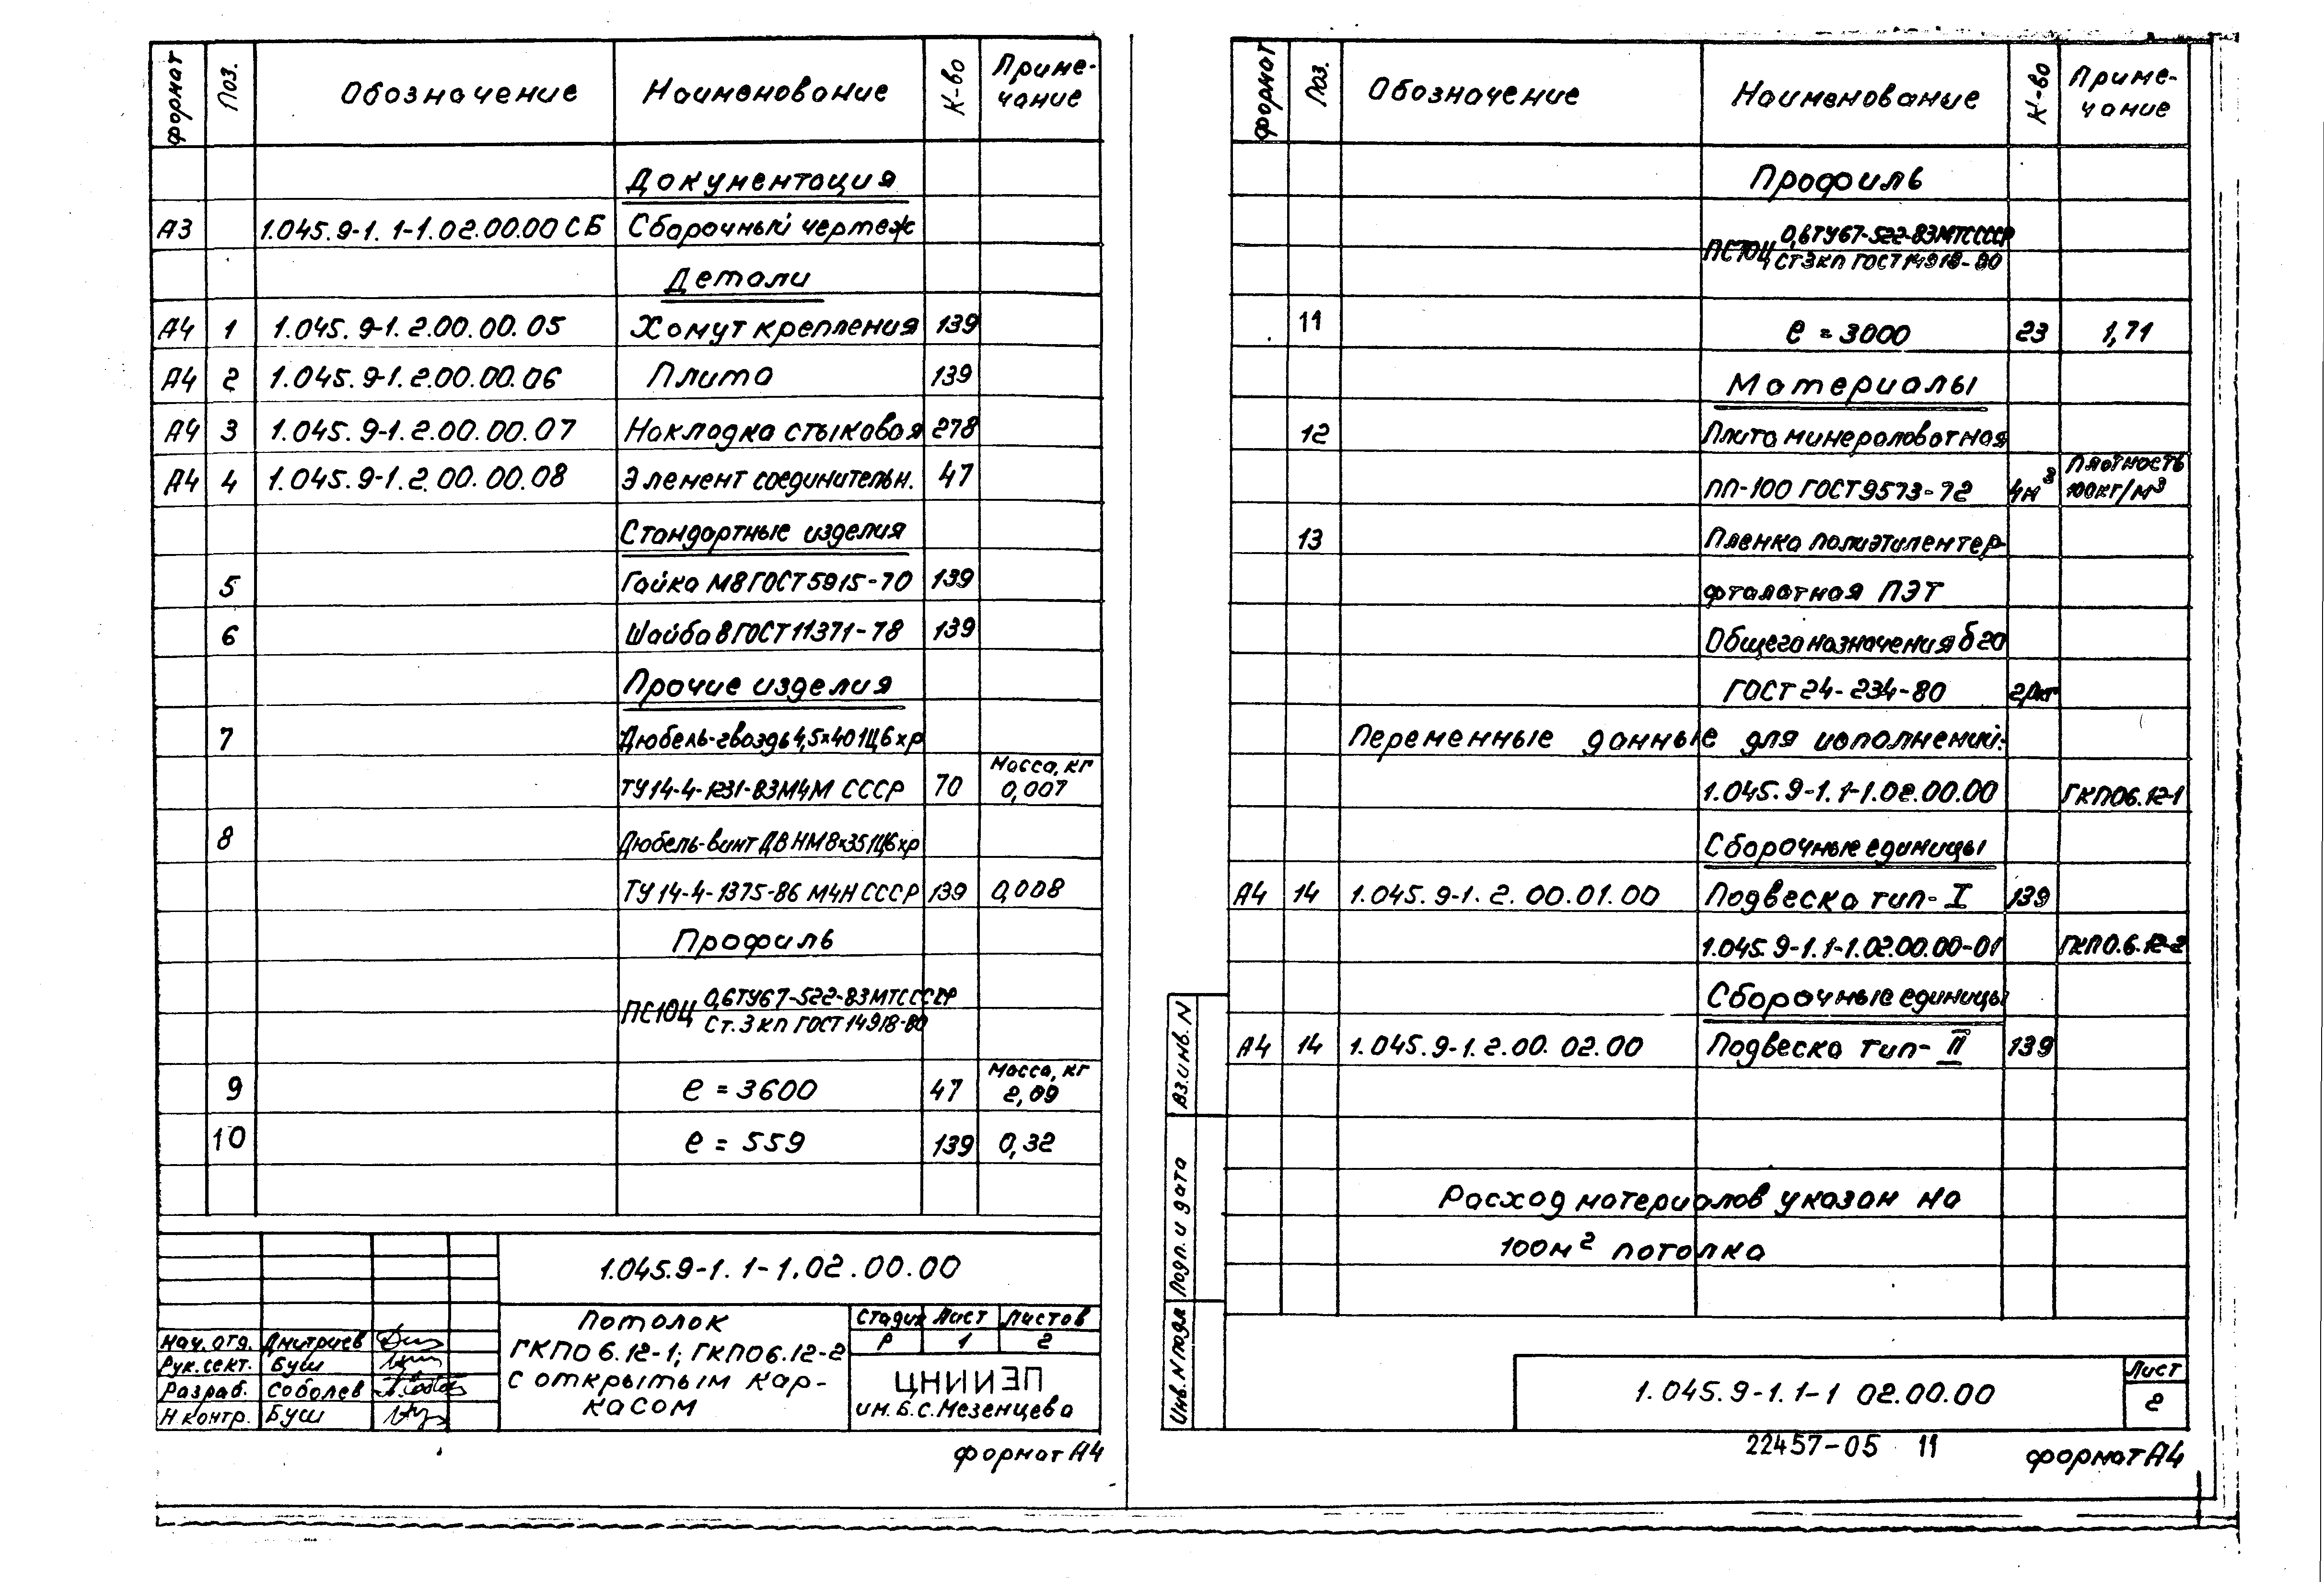 формат Поз. Обозначение Наименование К-во Приме-
чание
Документация
А3 1.045.9-1. 1-1.02.00.00 СБ Сборочный чертеж
Детали
А4 1 1.045.9-1.2.00.00.05 Хомут крепления 139
А4 2 1.045.9-1.2.00.00.06 Плита 139
А4 3 1.045.9-1.2.00.00.07 Накладка стыковая 278
А4 4 1.045.9-1.2.00.00.08 Элемент соединительн. 47
Стандартные изделия
5 Гайка М8 ГОСТ 5915-70 139
6 Шайба 8 ГОСТ 11371-78 139
Прочие изделия
7 Дюбель-гвоздь 4,5×40 1Ц6хр
Масса, кг
ТУ14-4-1231-83 М4М СССР 70 0,007
8 Дюбель-винт ДВ НМ8×35 1Ц6хр
ТУ14-4-1375-86 М4Н СССР 139 0,008
Профиль
ПС10Ц 0,6ТУ67-522-83МТС СССР
Ст.3кп ГОСТ 14918-80
Масса, кг
9 ℓ = 3600 47 2,09
10 ℓ = 559 139 0,32
1.045.9-1. 1-1.02.00.00
Потолок
ГКПО 6.12-1; ГКПО6.12-2
с открытым кар-
касом
Стадия Лист Листов
Р 1 2
ЦНИИЭП
им. Б.С. Мезенцева
Нач. отд. Дмитриев
Рук. сект. Буш
Разраб. Соболев
Н контр. Буш
формат А4
формат Поз. Обозначение Наименование К-во Приме-
чание
Профиль
ПС10Ц 0,6ТУ67-522-83МТС СССР
Ст3кп ГОСТ 14918-80
11 ℓ = 3000 23 1,71
Материалы
12 Плита минераловатная
ПП-100 ГОСТ 9573-72 4м³ Плотность
100кг/м³
13 Пленка полиэтилентер-
фталатная ПЭТ
Общего назначения б 20
ГОСТ 24-234-80
Переменные данные для исполнений:
1.045.9-1.1-1.02.00.00 ГКПО6.12-1
Сборочные единицы
А4 14 1.045.9-1.2.00.01.00 Подвеска тип-I 139
1.045.9-1.1-1.02.00.00-01 ГКПО.6.12-2
Сборочные единицы
А4 14 1.045.9-1.2.00.02.00 Подвеска тип-II 139
Расход материалов указан на
100м² потолка
Вз.инв. N
Подп. и дата
Инв. N подл
1.045.9-1.1-1 02.00.00
Лист
2
22457-05 11
формат А4